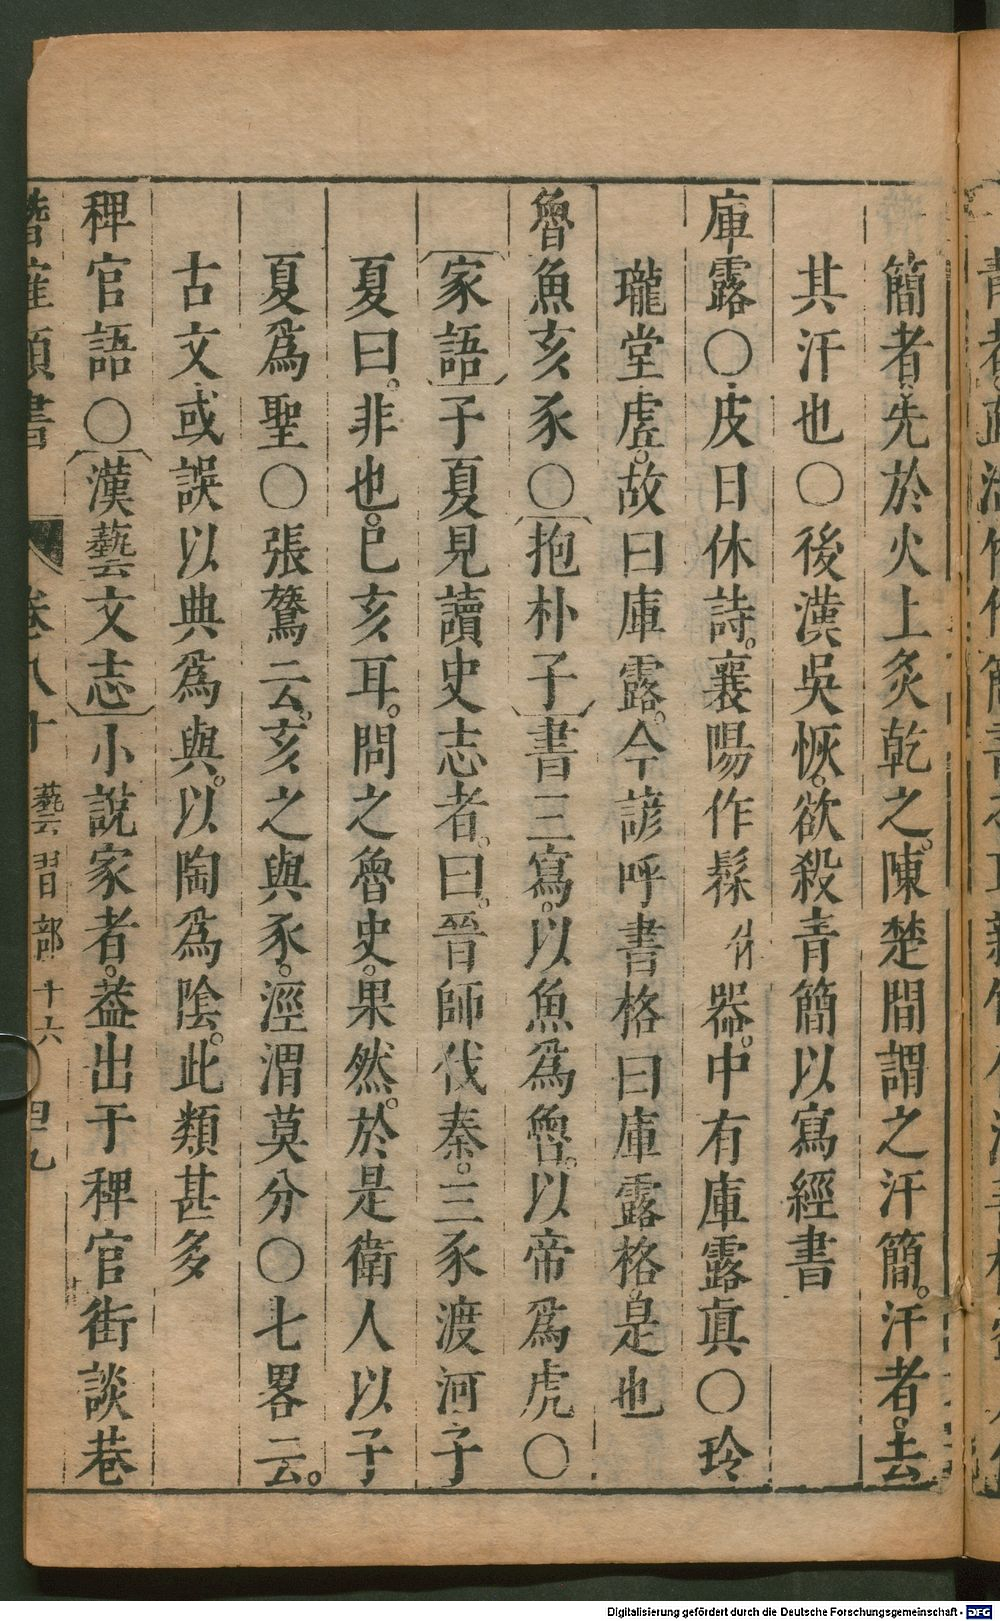 簡者先於火上炙乾之陳楚間謂之汗簡汗者去
其汗也○後漢吳恢欲殺青簡以寫經書
庫露○皮日休詩襄陽作髹休器中有庫露眞○玲
瓏堂虗故曰庫露今諺呼書格曰庫露格是也
魯魚亥豕○抱朴子書三寫以魚爲魯以帝爲虎○
家語子夏見讀史志者曰晉師伐秦三豕渡河子
夏曰非也巳亥耳問之魯史果然於是衛人以子
夏爲聖○張鷟云亥之與豕涇渭莫分○七畧云
古文或誤以典爲與以陶爲陰此類甚多
稗官語○漢藝文志小說家者葢出于稗官街談巷
卷八十 藝習部十六 四九
Digitalisierung gefördert durch die Deutsche Forschungsgemeinschaft - DFG